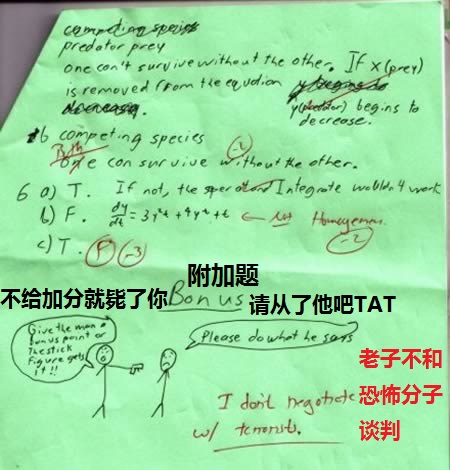 competing species
predator prey
one can't survive without the other. If x (prey)
is removed from the equation
y (predator) begins to
decrease.
decreasing.
b competing species
Both
One can survive without the other.
-2
6 a) T. If not, the operator Integrate wouldn't work
b) F. dy/dt = 3y²t + 4y² + t ← not Homogenous.
-2
c) T. F -3
附加题
不给加分就毙了你 Bonus 请从了他吧TAT
Give the man a
bonus point or
the stick
figure gets
it!!
Please do what he says
老子不和
恐怖分子
谈判
I don't negotiate
w/ terrorists.